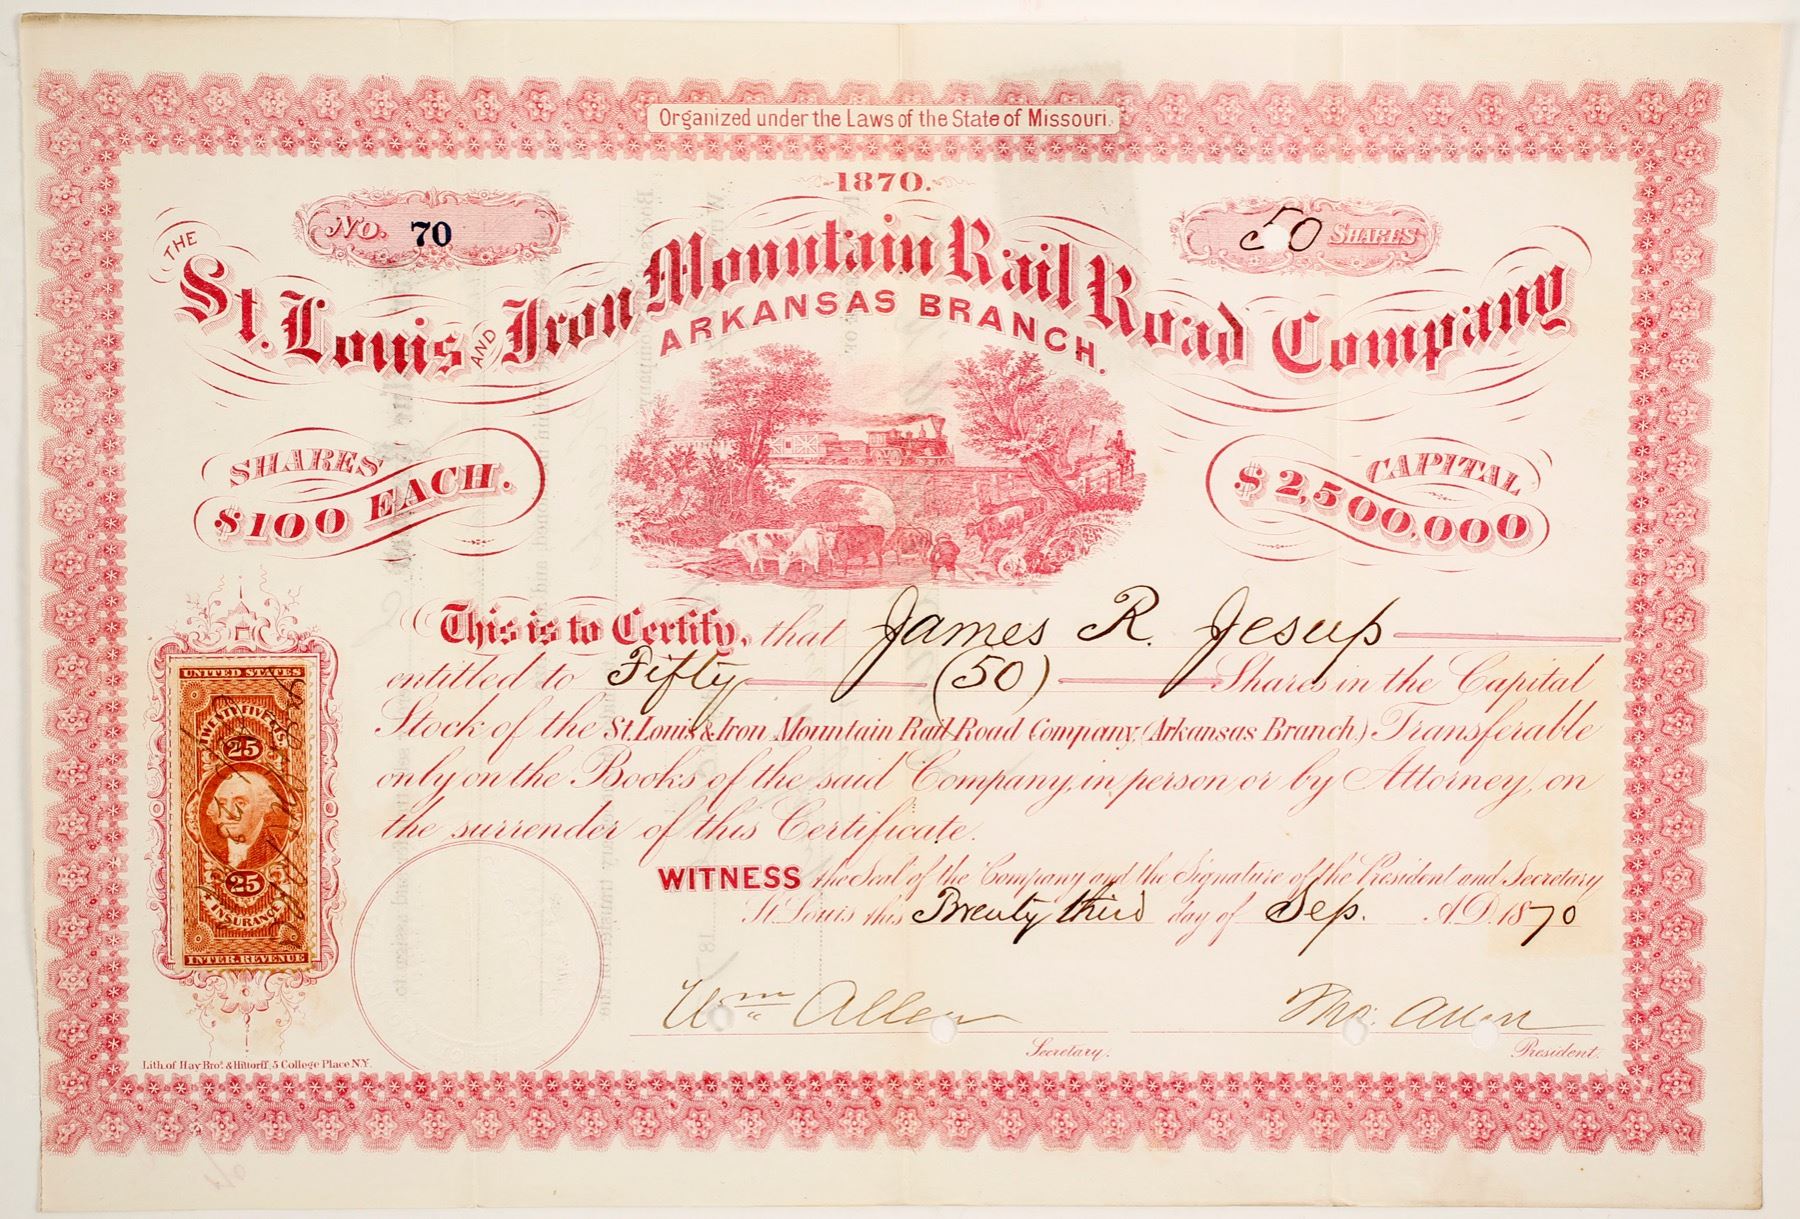 Organized under the Laws of the State of Missouri.
1870.
No. 70
50 SHARES
THE St. Louis AND Iron Mountain Rail Road Company
ARKANSAS BRANCH.
SHARES $100 EACH.
CAPITAL $2,500,000
This is to Certify, that James R. Jesup
entitled to Fifty (50) Shares in the Capital
Stock of the St. Louis & Iron Mountain Rail Road Company, (Arkansas Branch.) Transferable
only on the Books of the said Company, in person or by Attorney, on
the surrender of this Certificate.
WITNESS the Seal of the Company and the Signature of the President and Secretary
St. Louis this Twenty third day of Sep. A.D. 1870
Wm Allen
Tho: Allen
Secretary.
President.
UNITED STATES
TWENTY FIVE CTS.
25
25
INSURANCE
INTER. REVENUE
Lith. of Hay Bros. & Hiltorff, 5 College Place N.Y.